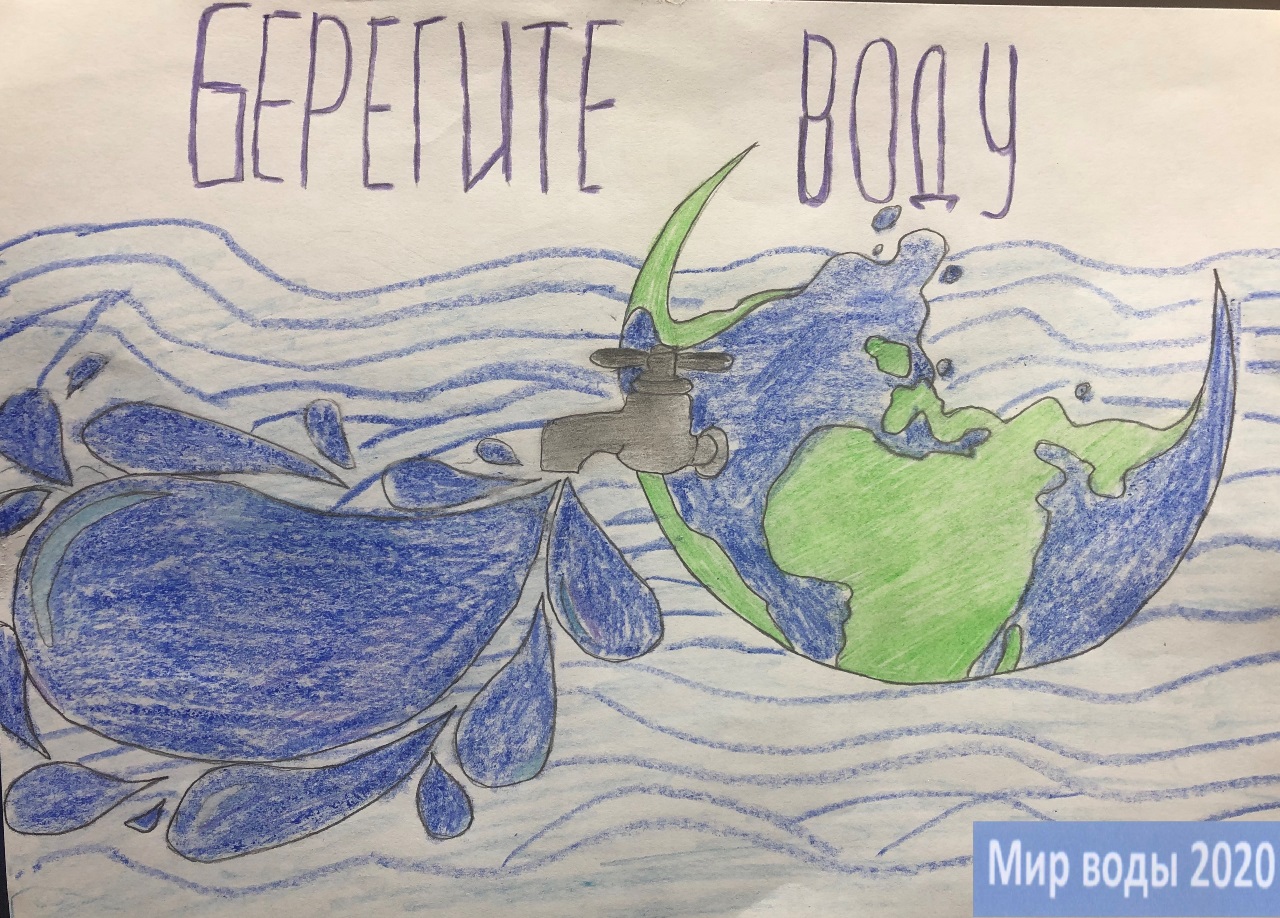 БЕРЕГИТЕ ВОДУ
Мир воды 2020